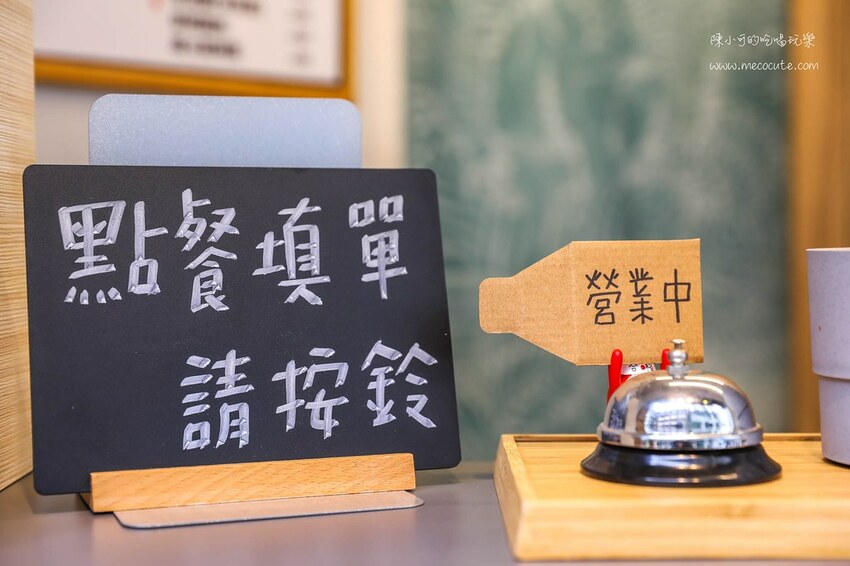 陳小可的吃喝玩樂
www.mecocute.com
點餐填單
請按鈴
營業中